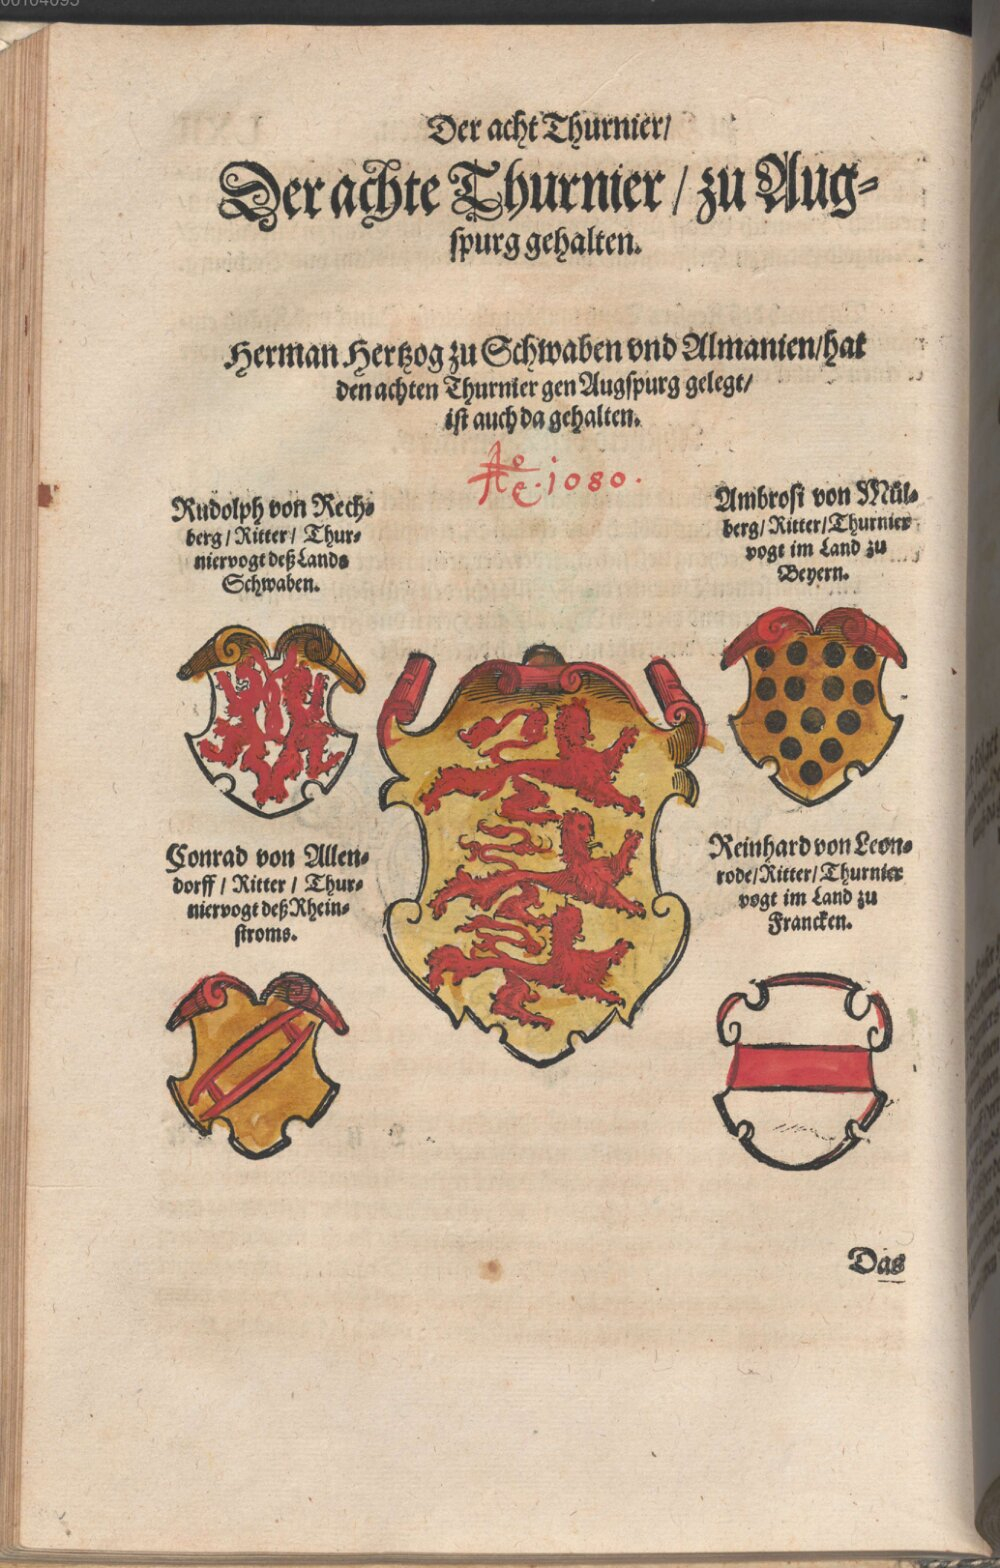 Der acht Thurnier/
Der achte Thurnier / zu Aug-
spurg gehalten.
Herman Hertzog zu Schwaben vnd Almanien/hat
den achten Thurnier gen Augspurg gelegt/
ist auch da gehalten.
Ao .1080.
Rudolph von Rech-
berg / Ritter / Thur-
niervogt deß Lands
Schwaben.
Ambrosi von Mül-
berg/ Ritter/Thurnier
vogt im Land zu
Beyern.
Conrad von Allen-
dorff / Ritter / Thur-
niervogt deß Rhein-
stroms.
Reinhard von Leon-
rode/Ritter/Thurnier
vogt im Land zu
Francken.
Das